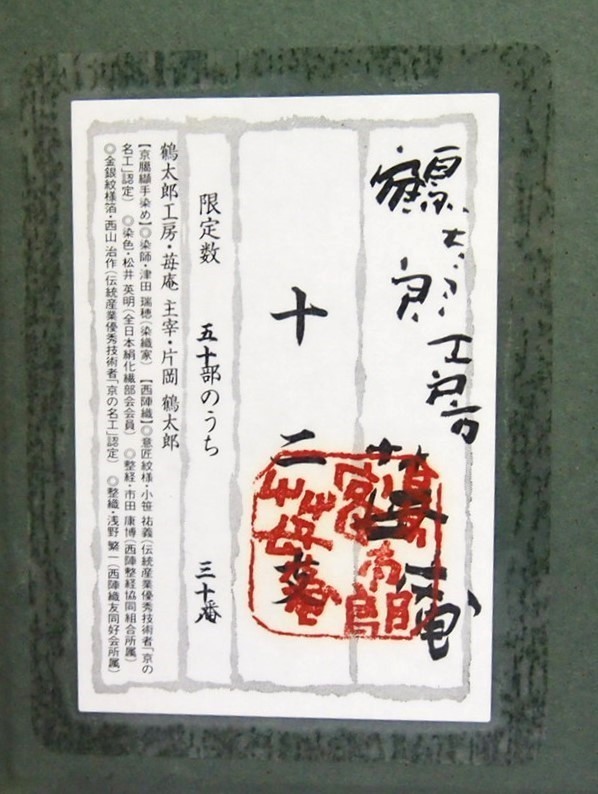 鶴太郎工房
苺庵
十二
限定数　五十部のうち　三十番
鶴太郎工房・苺庵 主宰・片岡 鶴太郎
【京臈纈手染め】◎染師・津田 瑞穂(染織家) 【西陣織】◎意匠紋様・小笹 祐義(伝統産業優秀技術者「京の
名工」認定) ◎染色・松井 英明(全日本絹化繊部会会員) ◎整経・市田 康博(西陣整経協同組合所属)
◎金銀紋様箔・西山 治作(伝統産業優秀技術者「京の名工」認定) ◎整織・浅野 繁一(西陣織友同好会所属)